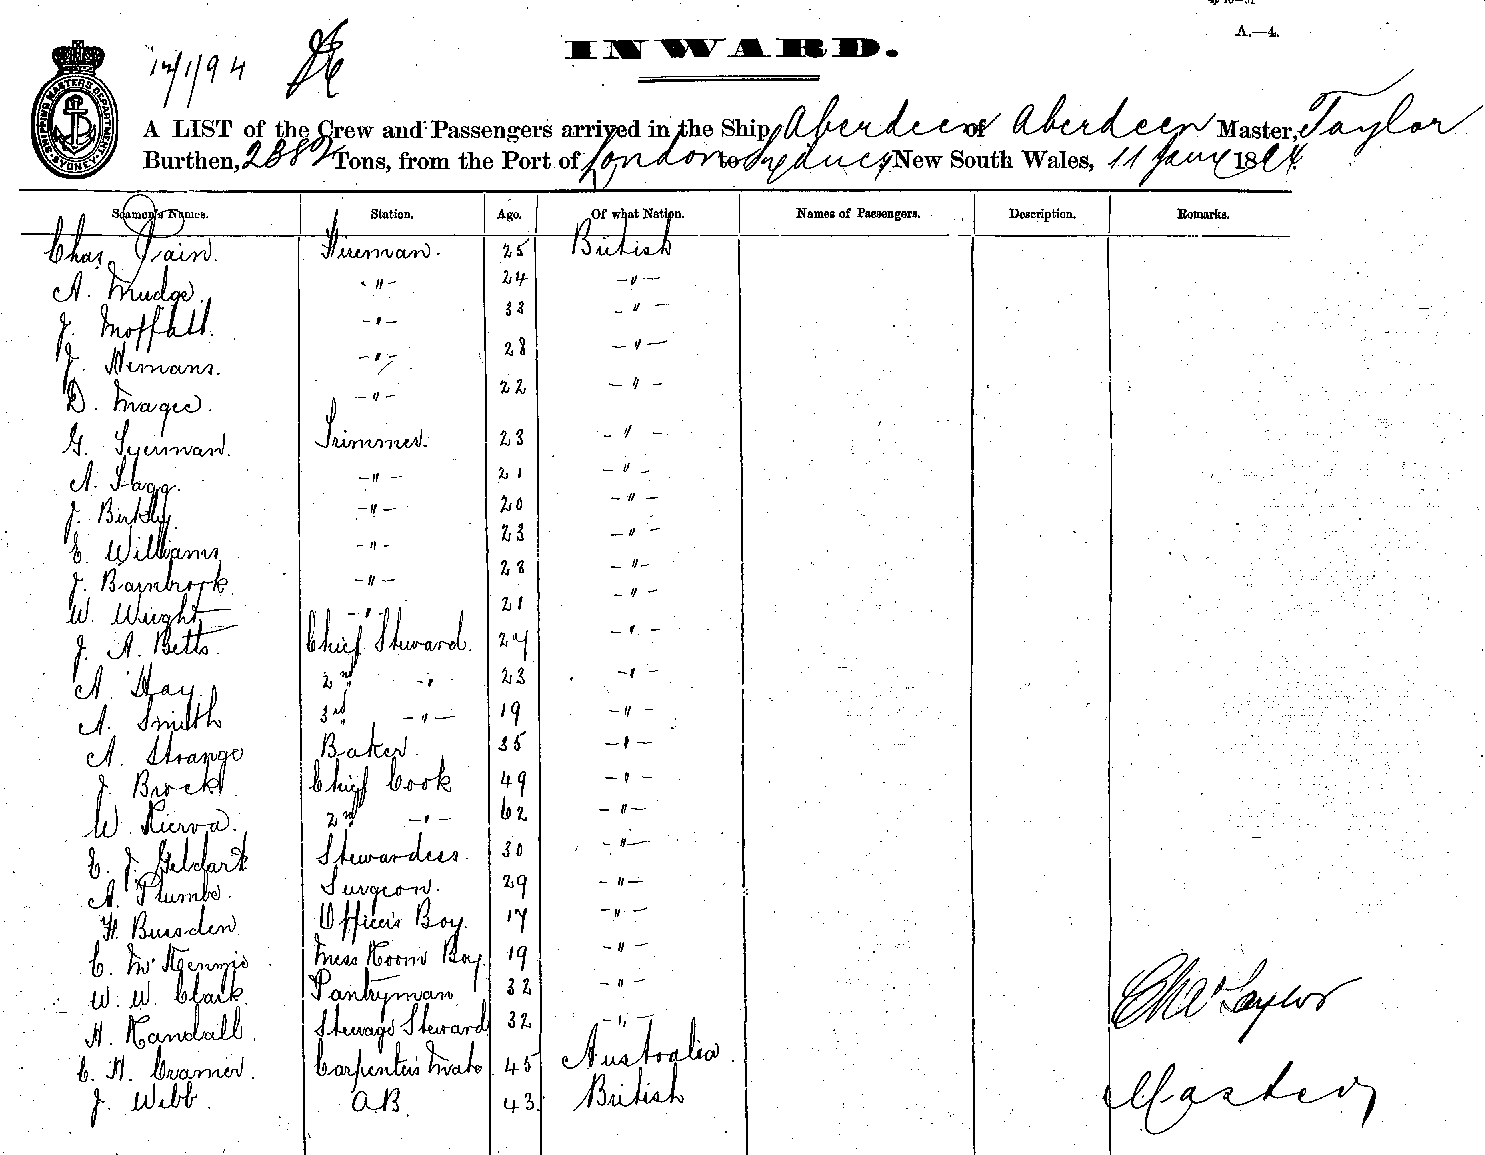 A.—4.
12/1/94
INWARD.
A LIST of the Crew and Passengers arrived in the Ship, Aberdeen of Aberdeen Master, Taylor
Burthen, Tons, from the Port of London to Sydney New South Wales, 11 Jany 1894
Seamen's Names. Station. Age. Of what Nation. Names of Passengers. Description. Remarks.
Chas. Pain. Fireman. 25 British
A. Mudge. —"— 24 —"—
J. Moffatt. —"— 33 —"—
J. —"— 28 —"—
D. Magee. —"— 22 —"—
G. Trimmer. 23 —"—
A. —"— 21 —"—
J. —"— 20 —"—
E. Williams —"— 23 —"—
J. Baynbrook —"— 28 —"—
W. Wright —"— 21 —"—
J. A. Betts. Chief Steward. 27 —"—
A. Hay. 2nd —"— 23 —"—
A. Smith 3rd —"— 19 —"—
A. Strange Baker. 35 —"—
J. Brock Chief Cook 49 —"—
W. 2nd —"— 62 —"—
E. J. Geldart Stewardess. 30 —"—
A. Plumbe. Surgeon. 29 —"—
H. Bursden Officers Boy. 17 —"—
C. McKenzie Mess Room Boy. 19 —"—
W. W. Clark. Pantryman 32 —"—
H. Randall. Steerage Steward 32 —"—
C. H. Cramer. Carpenters Mate 45 Australia.
J. Webb. AB. 43. British
Taylor
Master
SHIPPING MASTERS DEPARTMENT SYDNEY